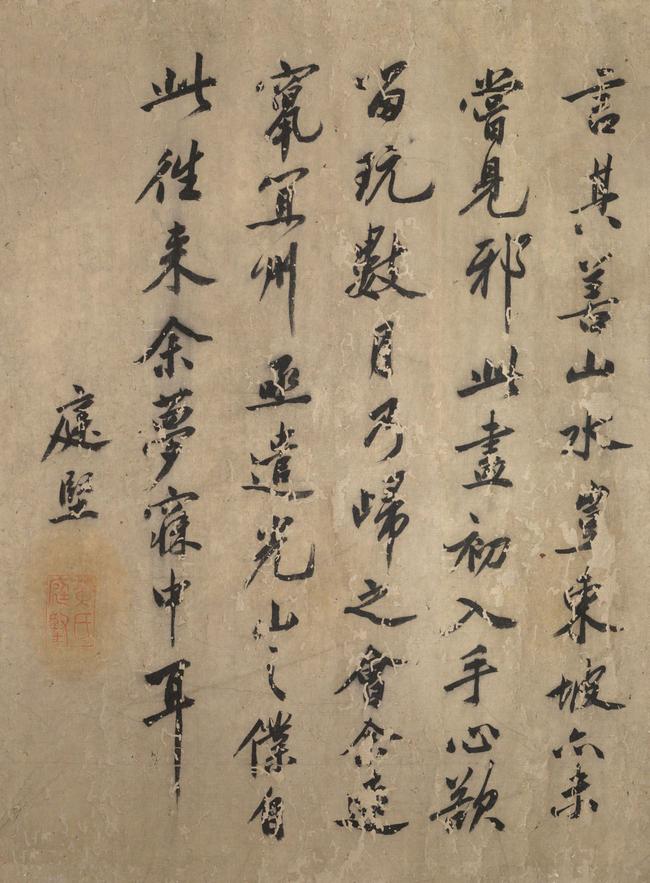 言其善山水豈東坡亦未
嘗見邪此畫初入手心欲
留玩數月乃歸之會余遠
竄宜州亟遣光山之僕自
此往来余夢寐中耳
庭堅
黃氏
庭堅